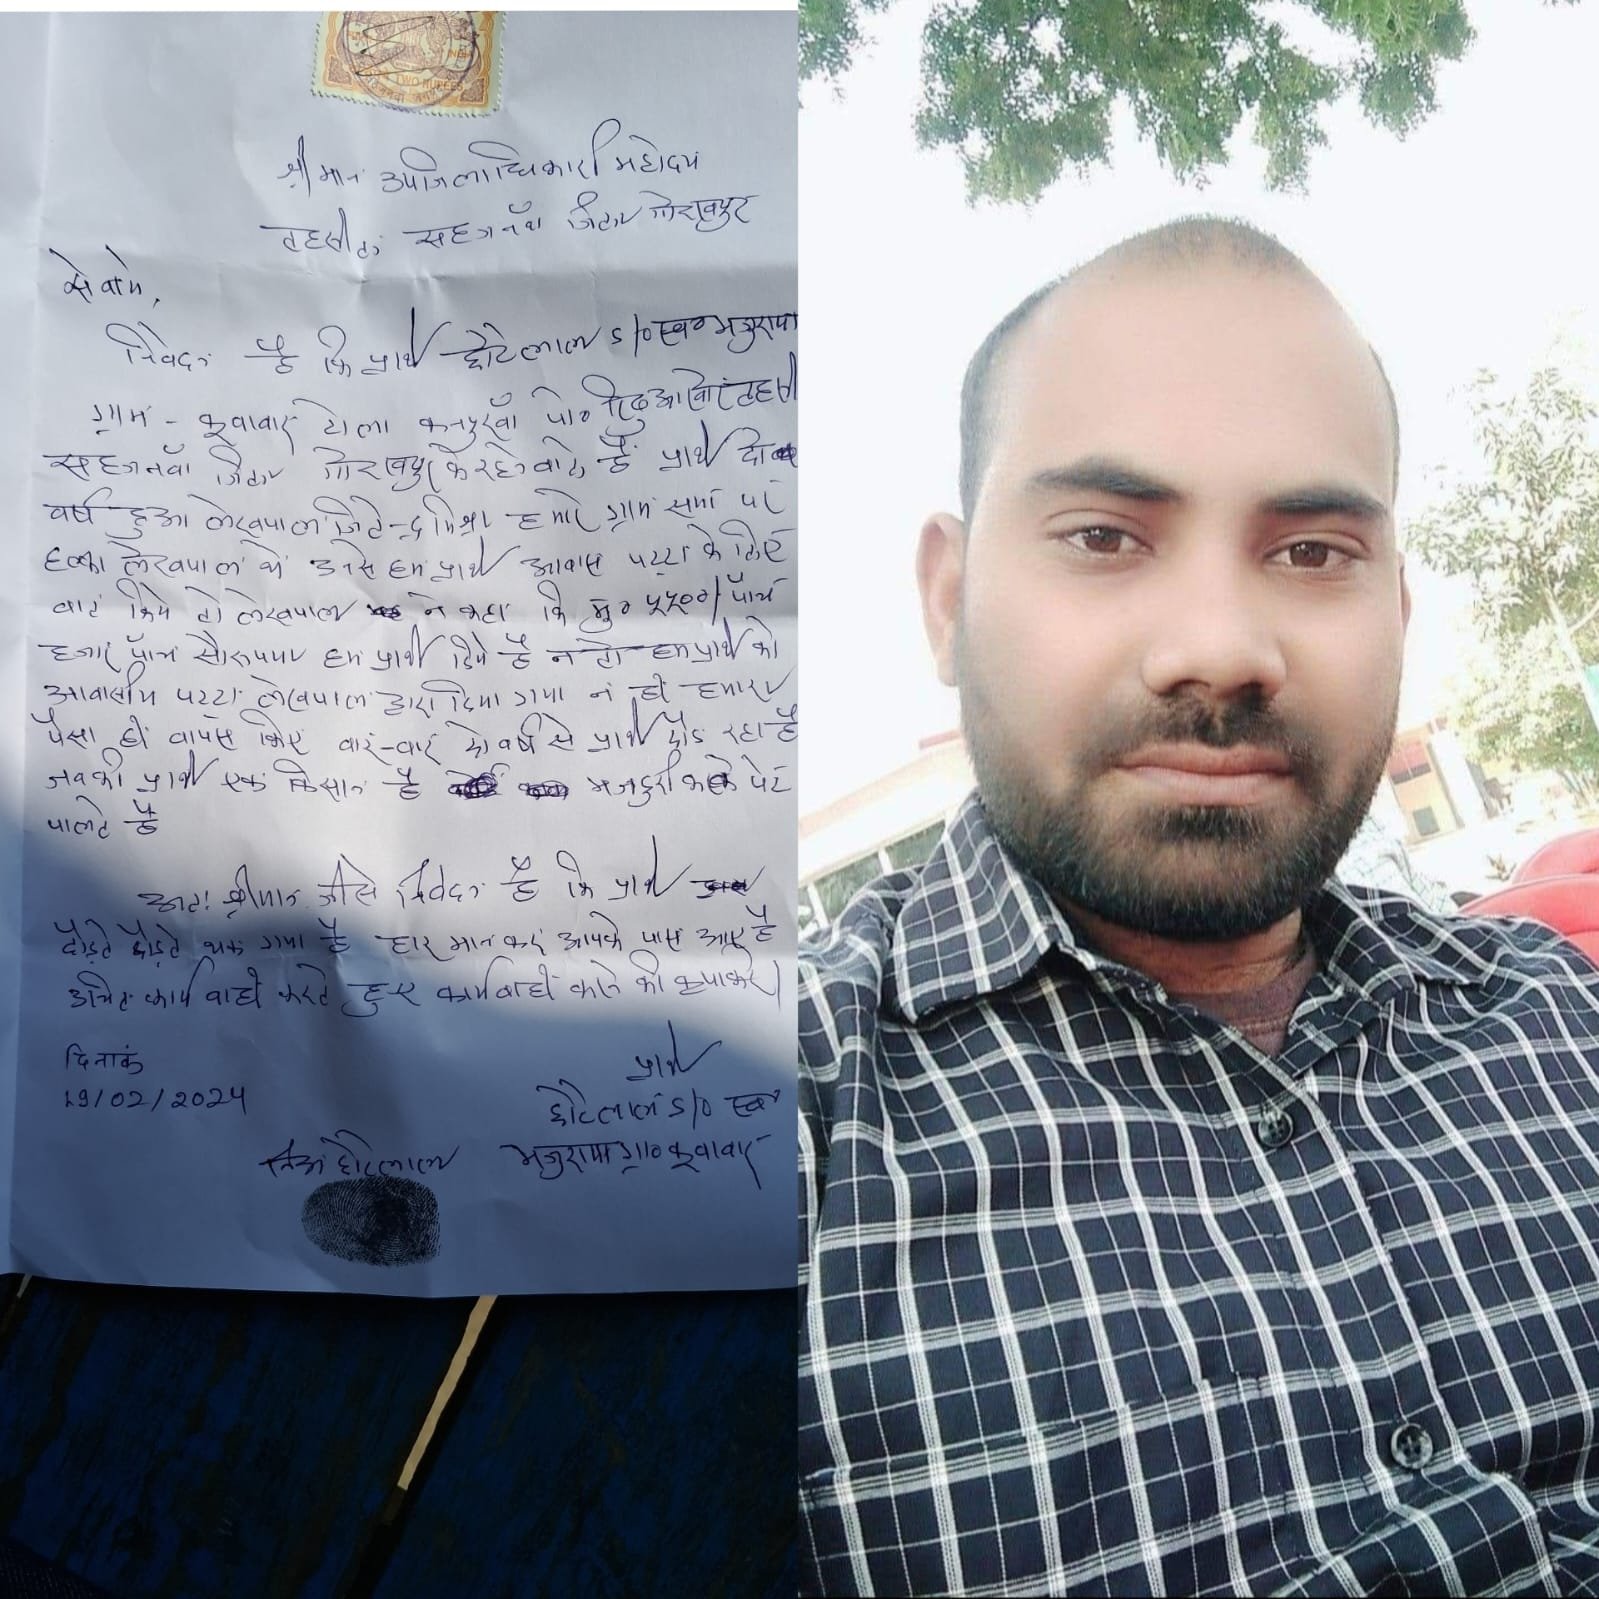 TWO RUPEES
श्रीमान उपजिलाधिकारी महोदय
तहसील सहजनवाँ जिला गोरखपुर
सेवामें,
निवेदन है कि प्रार्थी छोटेलाल S/O स्व०
ग्राम - कुवावार टोला पो०
सहजनवाँ जिला गोरखपुर के रहने वाले हैं प्रार्थी दो
वर्ष हुआ लेखपाल जितेन्द्र मिश्रा हमारे ग्राम सभा पर
हल्का लेखपाल थे उनसे हम प्रार्थी आवास पट्टा के लिए
बात किये तो लेखपाल ने कहा कि मु० ५५००/ पाँच
हजार पाँच सौ रुपया हम प्रार्थी दिये है न तो हम प्रार्थी को
आवासीय पट्टा लेखपाल द्वारा दिया गया न ही हमारा
पैसा ही वापस किए बार-बार दो वर्ष से प्रार्थी दौड़ रहा है
जबकी प्रार्थी एक किसान है मजदुरी करके पेट
पालते है
अतः श्रीमान जी से निवेदन है कि प्रार्थी
दौड़ते दौड़ते थक गया है हार मानकर आपके पास आए है
उचित कार्यवाही करते हुए कार्यवाही करने की कृपा करे।
दिनांक
19/02/2024
प्रार्थी
छोटेलाल S/O स्व०
ग्रा० कुवावार
छोटेलाल